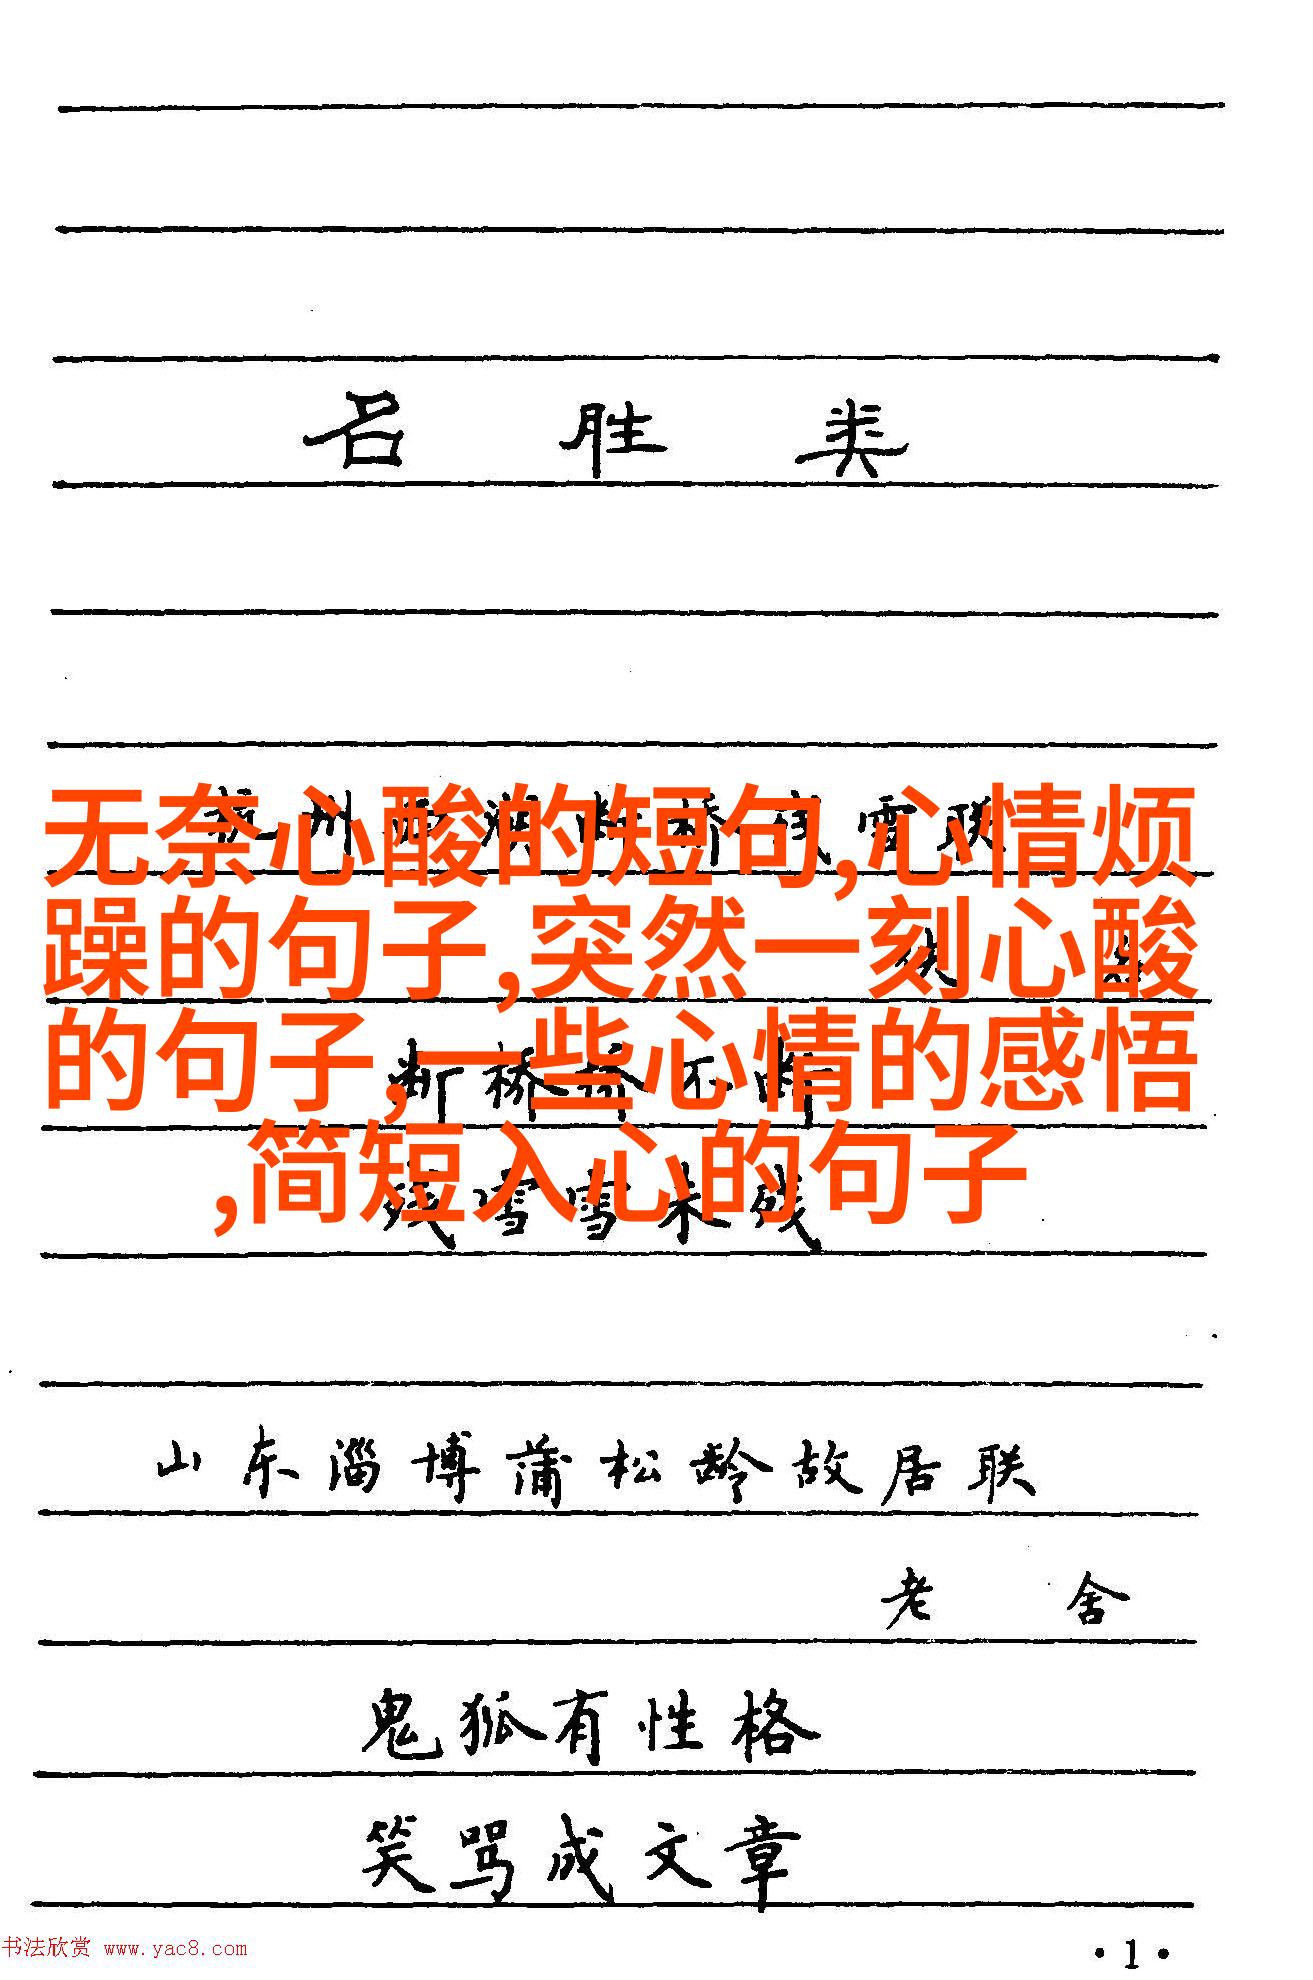 名胜类
杭州西湖断桥残雪联
无奈心酸的短句,心情烦
躁的句子,突然一刻心酸
的句子,一些心情的感悟
,简短入心的句子
断桥桥不断
残雪雪未残
山东淄博蒲松龄故居联
老舍
鬼狐有性格
笑骂成文章
书法欣赏 www.yac8.com
·1·